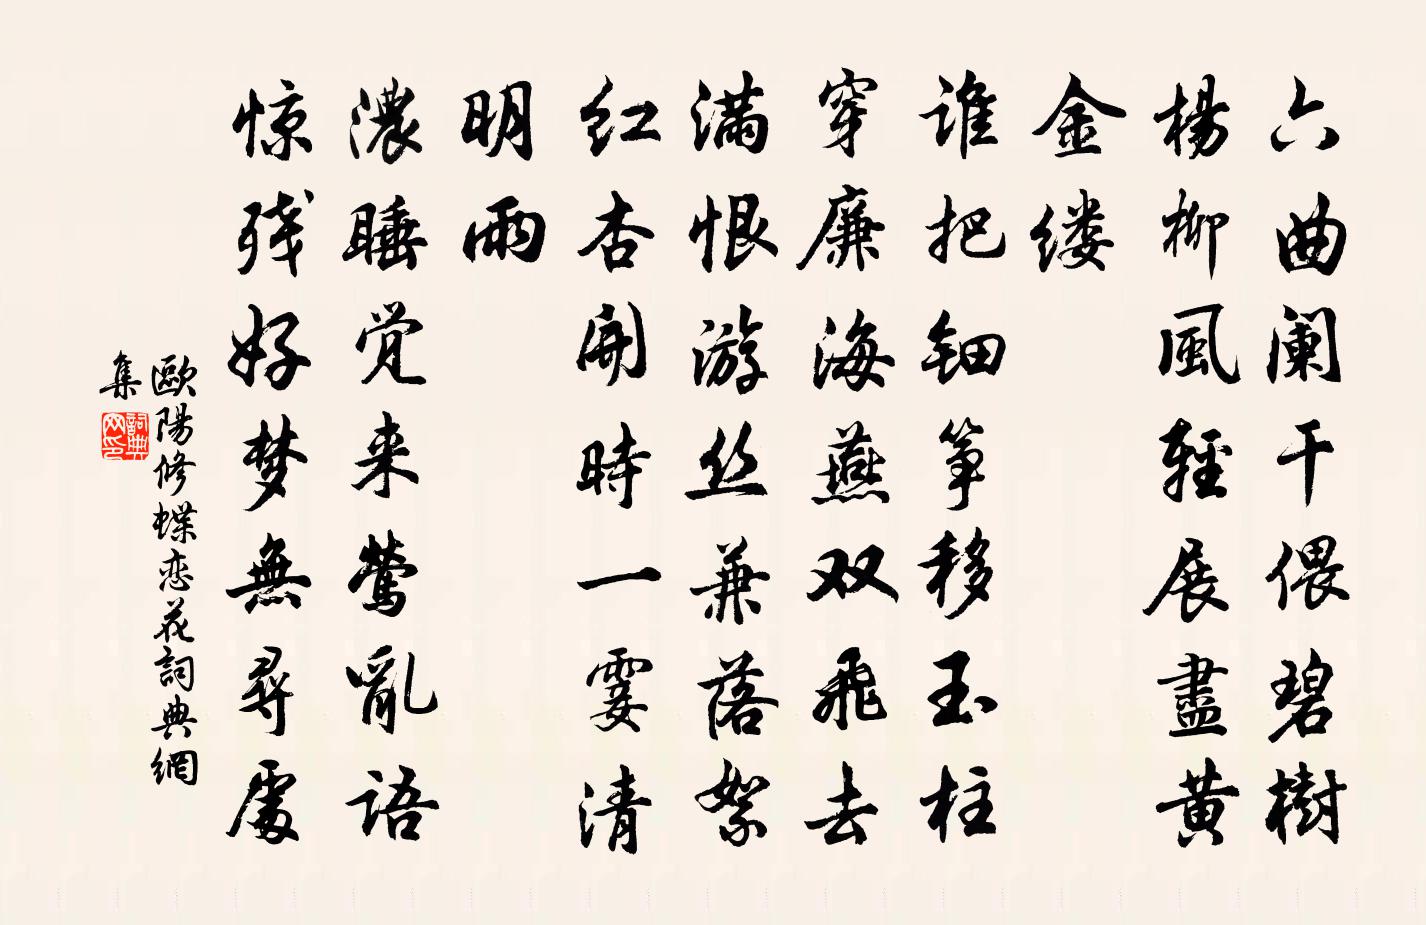 六曲阑干偎碧樹
楊柳風輕展盡黄
金缕
谁把钿筝移玉柱
穿廉海燕双飛去
满恨游丝兼落絮
红杏開時一霎清
明雨
濃睡觉来莺亂语
惊残好梦無尋處
歐陽修蝶恋花詞典網
集
詞典网印